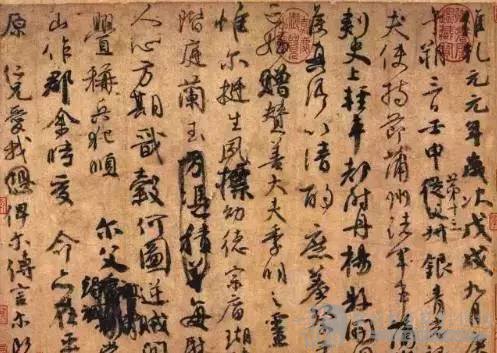 維乾元元年歲次戊戌九月庚
午朔三日壬申第十三從父叔銀青
夫使持節蒲州諸軍事蒲
刺史上輕車都尉丹楊縣開
侯真卿以清酌庶羞祭
亡姪贈贊善大夫季明之靈
惟爾挺生夙標幼德宗廟瑚
階庭蘭玉方憑積善每慰
人心方期戩穀何圖逆賊間
釁稱兵犯順爾父
山作郡余時受命亦在平
原仁兄愛我俾爾傳言爾既